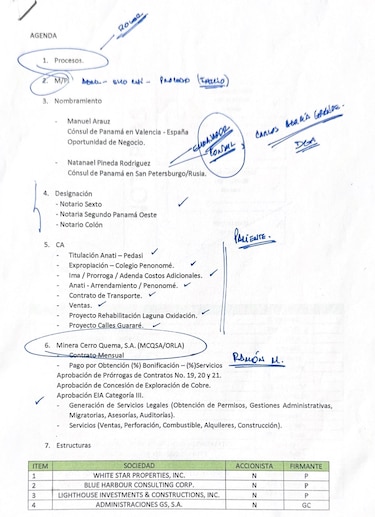 AGENDA
1. Procesos.
2. M/P
3. Nombramiento
- Manuel Arauz
Cónsul de Panamá en Valencia - España
Oportunidad de Negocio.
- Natanael Pineda Rodriguez
Cónsul de Panamá en San Petersburgo/Rusia.
4. Designación
- Notario Sexto
- Notaria Segundo Panamá Oeste
- Notario Colón
PARIENTE.
5. CA
- Titulación Anati – Pedasi
- Expropiación – Colegio Penonomé.
- Ima / Prorroga / Adenda Costos Adicionales.
- Anati - Arrendamiento / Penonomé.
- Contrato de Transporte.
- Ventas.
- Proyecto Rehabilitación Laguna Oxidación.
- Proyecto Calles Guararé.
6. Minera Cerro Quema, S.A. (MCQSA/ORLA)
- Contrato Mensual
RAMÓN M.
- Pago por Obtención (%) Bonificación – (%)Servicios
Aprobación de Prórrogas de Contratos No. 19, 20 y 21.
Aprobación de Concesión de Exploración de Cobre.
Aprobación EIA Categoría III.
- Generación de Servicios Legales (Obtención de Permisos, Gestiones Administrativas,
Migratorias, Asesorías, Auditorías).
- Servicios (Ventas, Perforación, Combustible, Alquileres, Construcción).
7. Estructuras
ITEM SOCIEDAD ACCIONISTA FIRMANTE
1 WHITE STAR PROPERTIES, INC. N P
2 BLUE HARBOUR CONSULTING CORP. N P
3 LIGHTHOUSE INVESTMENTS & CONSTRUCTIONS, INC. N P
4 ADMINISTRACIONES GS, S.A. N GC